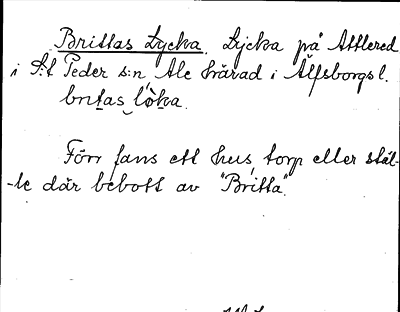 Brittas Lycka. Lycka på Attlered
i S:t Peder s:n, Ale härad i Älfsborgs l.
britas lỏka.
Förr fans ett hus, torp eller stäl-
-le där bebott av "Britta".